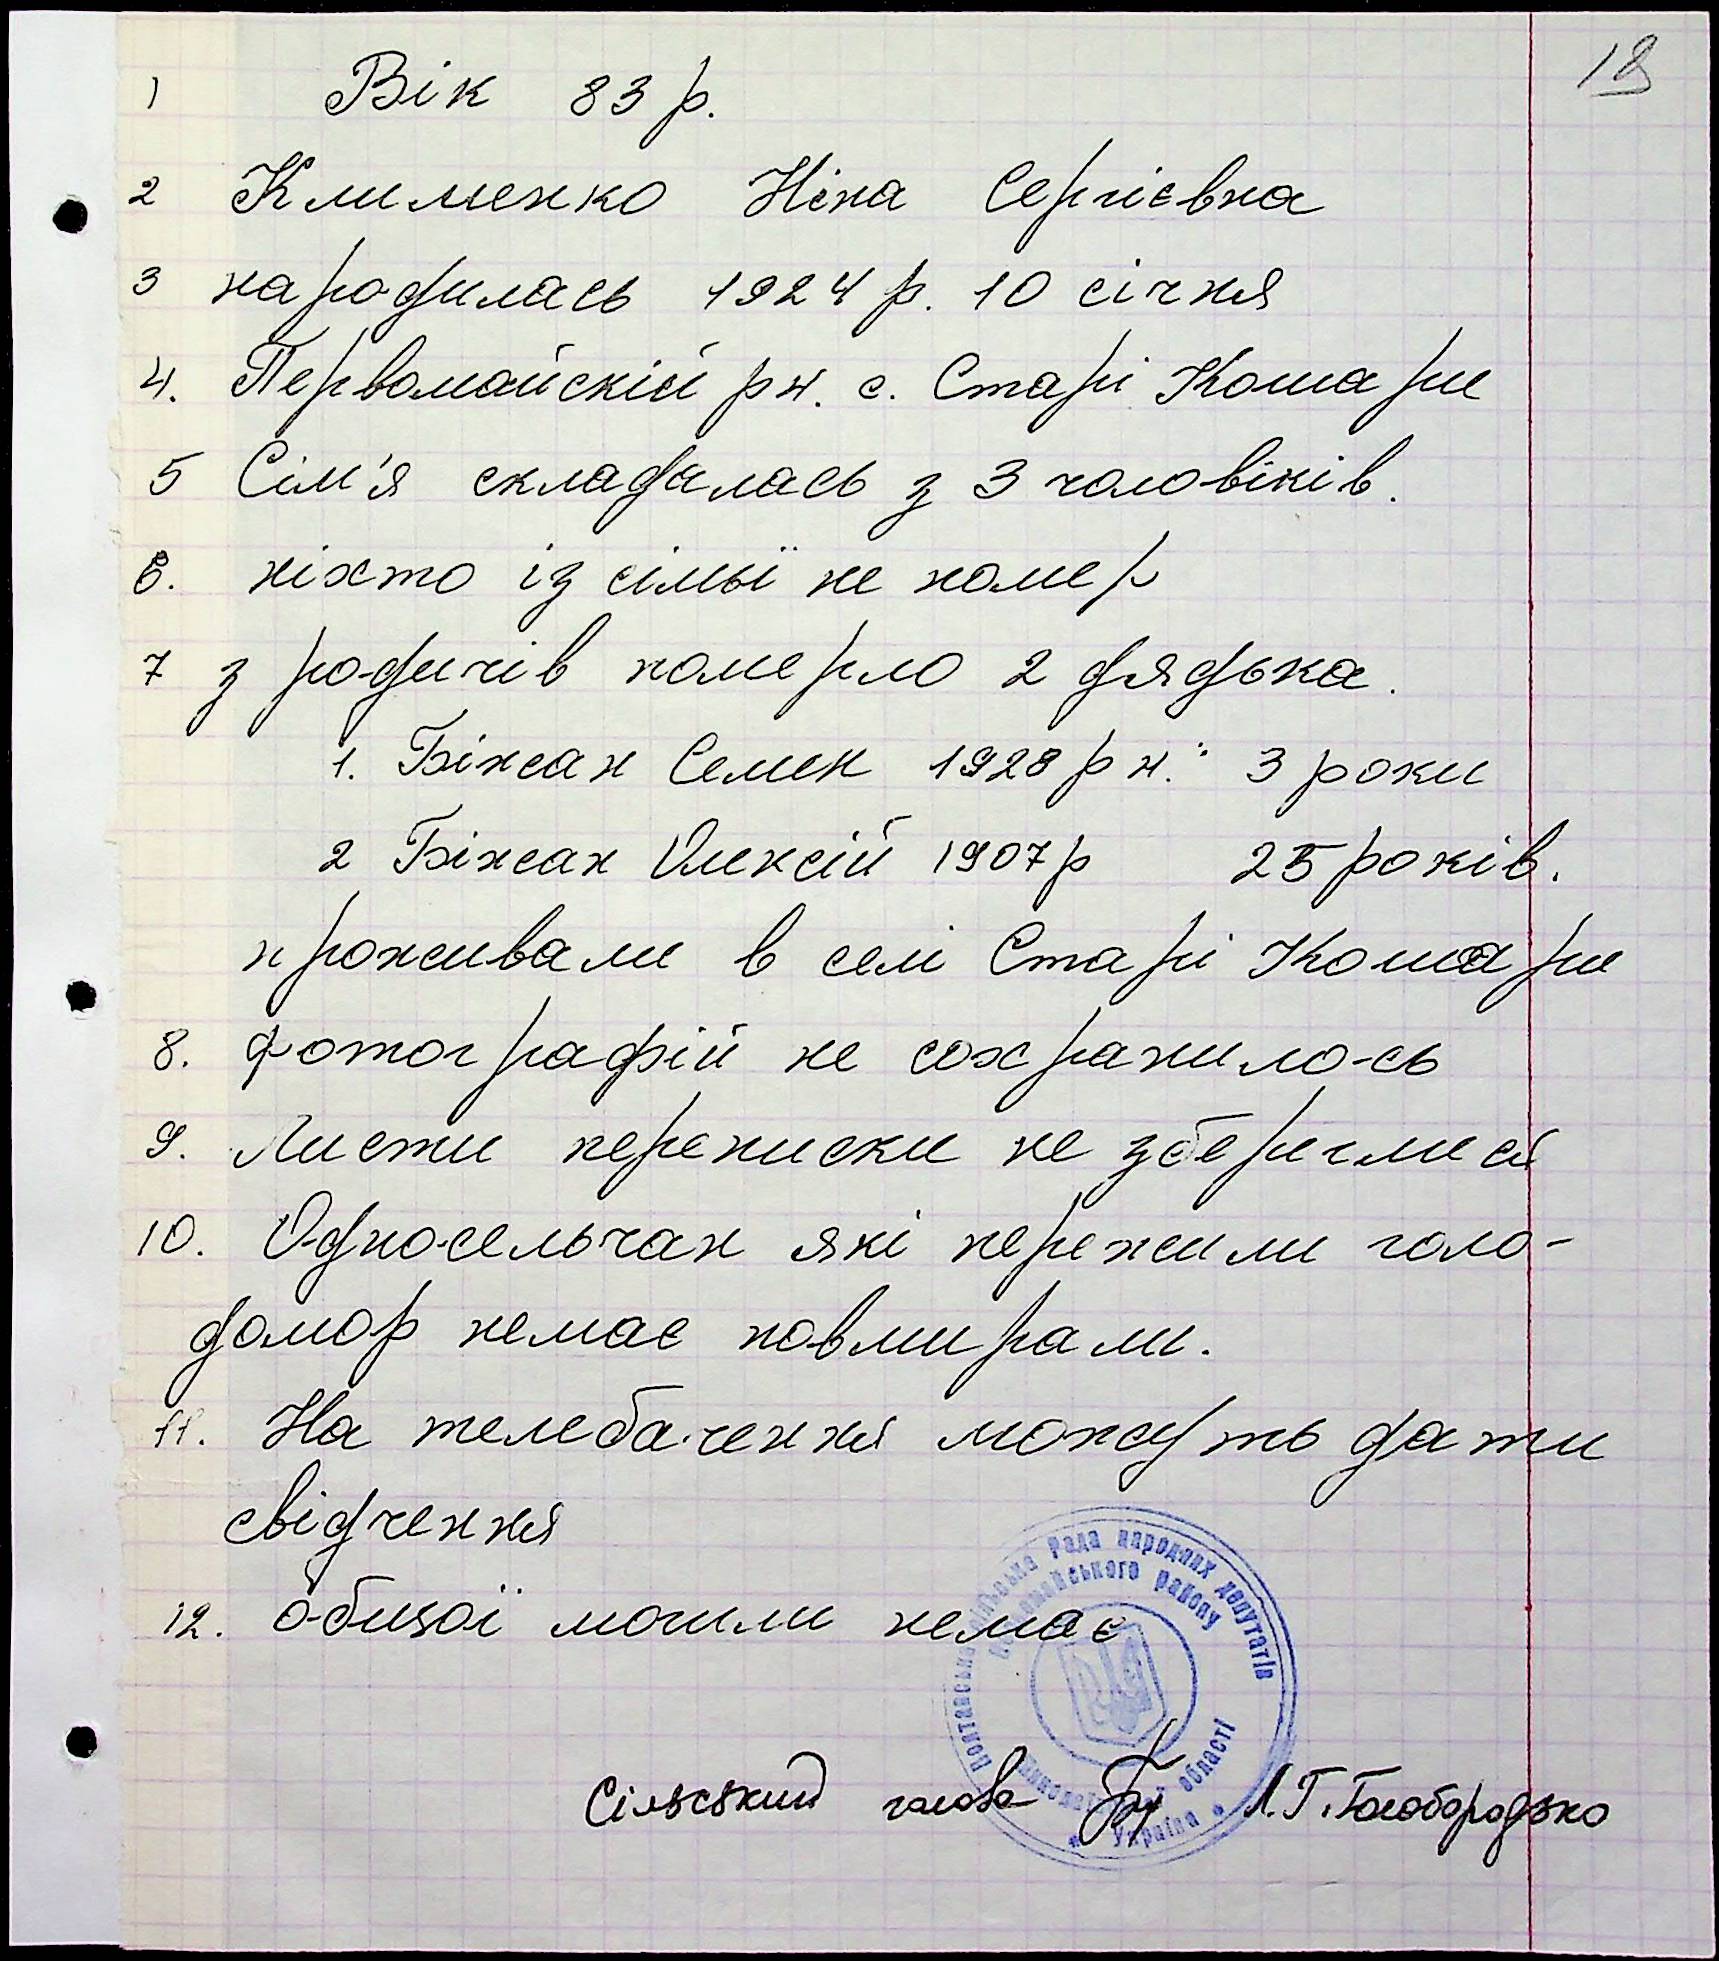 18
1 Вік 83 р.
2 Клименко Ніна Сергієвна
3 народилась 1924 р. 10 січня
4. Первомайскій рн. с. Старі Кошари
5 Сім'я складалась з 3 чоловіків.
6. ніхто із сімьї не помер
7 з родичів померло 2 дядька.
1. Біжан Семен 1928 р н. 3 роки
2 Біжан Олексій 1907р 25 років.
проживали в селі Старі Кошари
8. фотографій не сохранилось
9. Листи переписки не збереглися
10. Односельчан які пережили голо-
домор немає повмирали.
11. На телебачення можуть дати
свідчення
12. обшої могили немає
Полтавська сільська Рада народних депутатів
Первомайського району
Миколаївської області
* Україна *
Сільський голова Л.Г. Голобородько